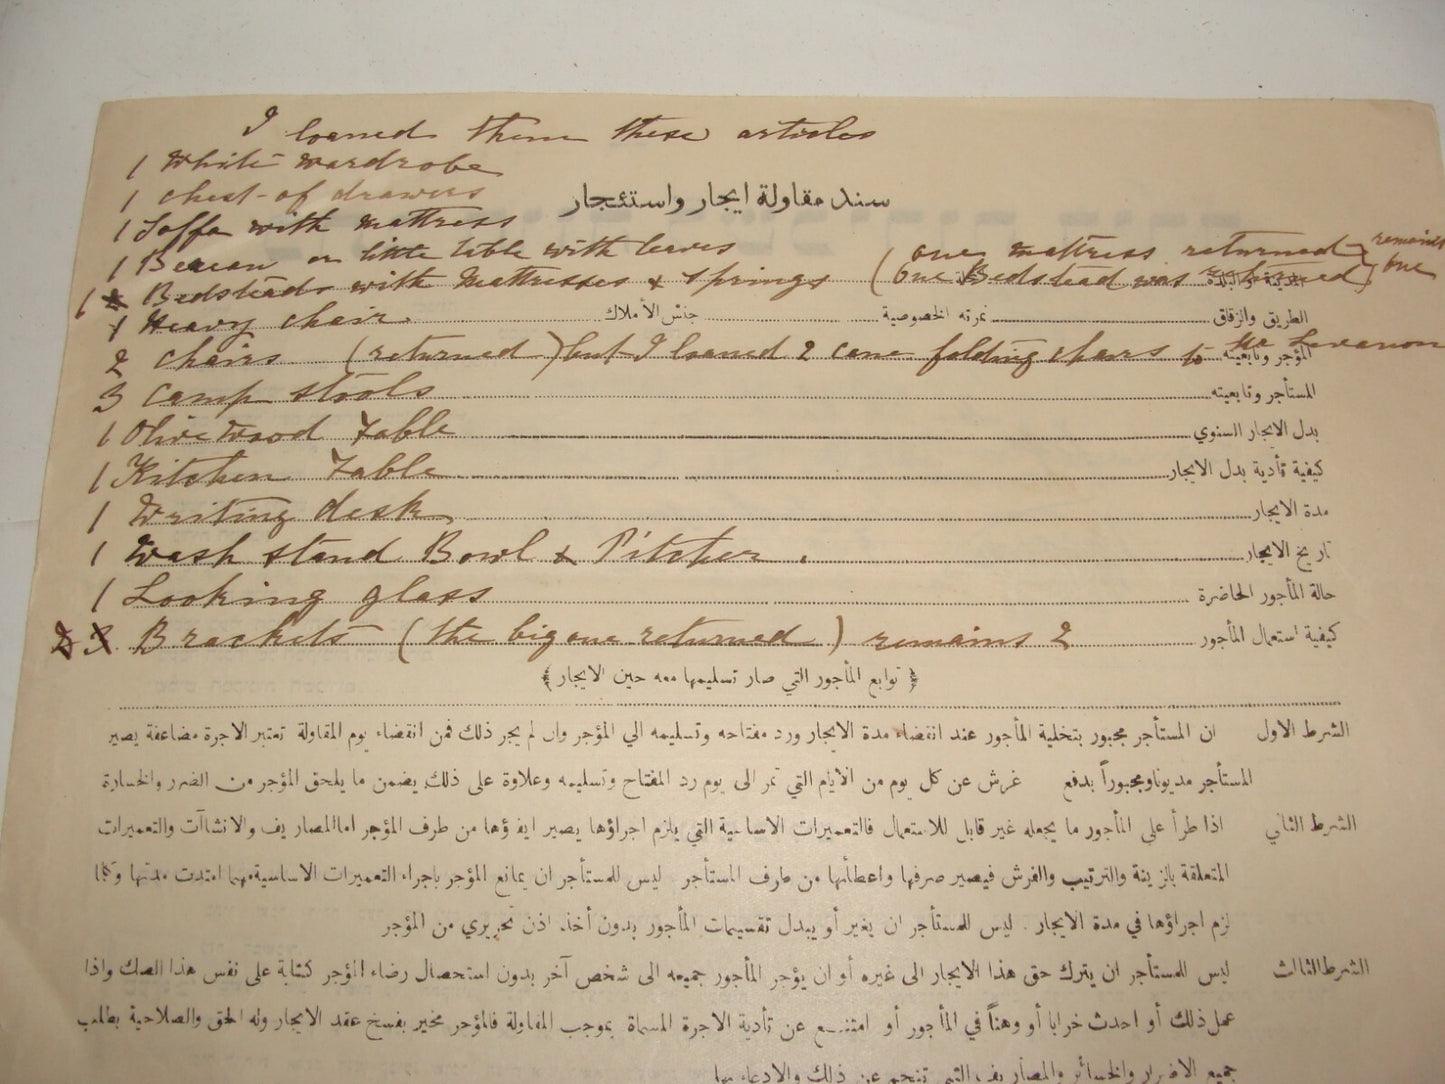 I loaned them these articles
1 White wardrobe
1 chest-of drawers
سند مقاولة ايجار واستئجار
1 Soffa with mattress
1 Bureau or little table with leaves (one mattress returned remains one
1 Bedsteads with Mattresses & Springs (One Bedstead was returned)
المدينة والبلدة
1 Heavy chair.
الطريق والزقاق نمرته الخصوصية جنس الأملاك
2 chairs (returned) but I loaned 2 cane folding chairs to
المؤجر وتابعيته
3 Camp stools
المستأجر وتابعيته
1 Olive Wood Table
بدل الايجار السنوي
1 Kitchen Table
كيفية تأدية بدل الايجار
1 Writing desk
مدة الايجار
1 Wash stand Bowl & Pitcher.
تاريخ الايجار
1 Looking glass
حالة المأجور الحاضرة
Brackets (the big one returned) remains 2
كيفية استعمال المأجور
﴿ توابع المأجور التي صار تسليمها معه حين الايجار ﴾
الشرط الاول ان المستأجر مجبور بتخلية المأجور عند انقضاء مدة الايجار ورد مفتاحه وتسليمه الي المؤجر وان لم يجر ذلك فمن انقضاء يوم المقاولة تعتبر الاجرة مضاعفة يصير
المستأجر مديونا ومجبوراً بدفع غرش عن كل يوم من الايام التي تمر الى يوم رد المفتاح وتسليمه وعلاوة على ذلك يضمن ما يلحق المؤجر من الضرر والخسارة
الشرط الثاني اذا طرأ على المأجور ما يجعله غير قابل للاستعمال فالتعميرات الاساسية التي يلزم اجراؤها يصير ايفاؤها من طرف المؤجر اما المصاريف والانشاآت والتعميرات
المتعلقة بالزينة والترتيب والفرش فيصير صرفها واعطاؤها من طرف المستأجر ليس للمستأجر ان يمانع المؤجر باجراء التعميرات الاساسية مهما امتدت مدتها وكلما
لزم اجراؤها في مدة الايجار . ليس للمستأجر ان يغير أو يبدل تقسيمات المأجور بدون أخذ اذن تحريري من المؤجر
الشرط الثالث ليس للمستأجر ان يترك حق هذا الايجار الى غيره أو ان يؤجر المأجور جميعه الى شخص آخر بدون استحصال رضاء المؤجر كتابة على نفس هذا الصك واذا
عمل ذلك أو احدث خرابا أو وهناً في المأجور أو امتنع عن تأدية الاجرة المسماة بموجب المقاولة فالمؤجر مخير بفسخ عقد الايجار وله الحق والصلاحية بطلب
جميع الاضرار والخسائر والمصاريف التي تنجم عن ذلك والادعاء بها